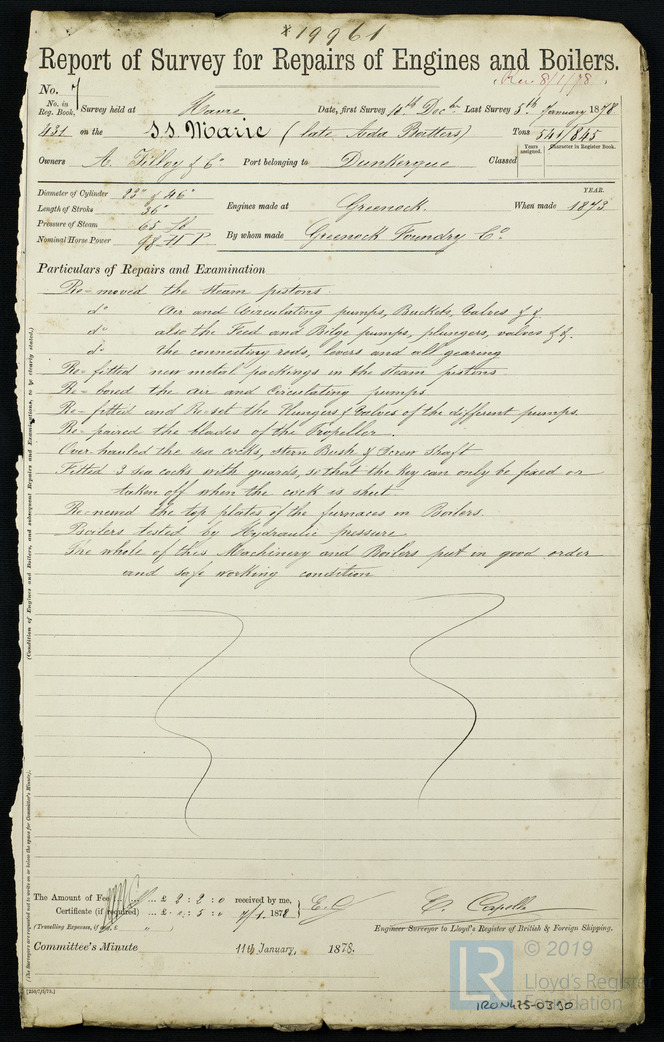 * 19961
Report of Survey for Repairs of Engines and Boilers.
Rec 8/1/78
No.
No. in Reg. Book. Survey held at Havre Date, first Survey 10th Decbr Last Survey 5th January 1878
431 on the S.S. Marie (late Batters) Tons 541/845
Owners A. & Co Port belonging to Dunkerque Classed Years assigned. Character in Register Book.
Diameter of Cylinder 23" & 46"
Length of Stroke 36"
Pressure of Steam 65 lb
Nominal Horse Power 98 H P
Engines made at Greenock.
By whom made Greenock Foundry Co.
YEAR.
When made 1873
Particulars of Repairs and Examination
Re-moved the steam pistons
do Air and Circulating pumps, Buckets, Valves & &
do also the Feed and Bilge pumps, plungers, valves & &.
do the connecting rods, levers and all gearing
Re-fitted new metal packings in the steam pistons
Re-bored the air and Circulating pumps
Re-fitted and Re-set the Plungers & Valves of the different pumps.
Re-paired the blades of the Propeller.
Over-hauled the sea cocks, stern Bush & Screw shaft
Fitted 3 sea cocks with guards, so that the key can only be fixed or
taken off when the cock is shut
Re-newed the top plates of the furnaces in Boilers.
Boilers tested by Hydraulic pressure
The whole of this Machinery and Boilers put in good order
and safe working condition
(Condition of Engines and Boilers, and subsequent Repairs and Examinations, to be clearly stated.)
(The Surveyors are requested not to write on or below the space for Committee's Minute.)
The Amount of Fee ... £ 2 : 2 : 0 received by me,
Certificate (if required) ... £ 0 : 5 : 0 7/1 1878
(Travelling Expenses, if any, £ " )
C. Capelle
Engineer Surveyor to Lloyd's Register of British & Foreign Shipping.
Committee's Minute 11th January, 1878.
© 2019
LR
Lloyd's Register
Foundation
IRON475-0390